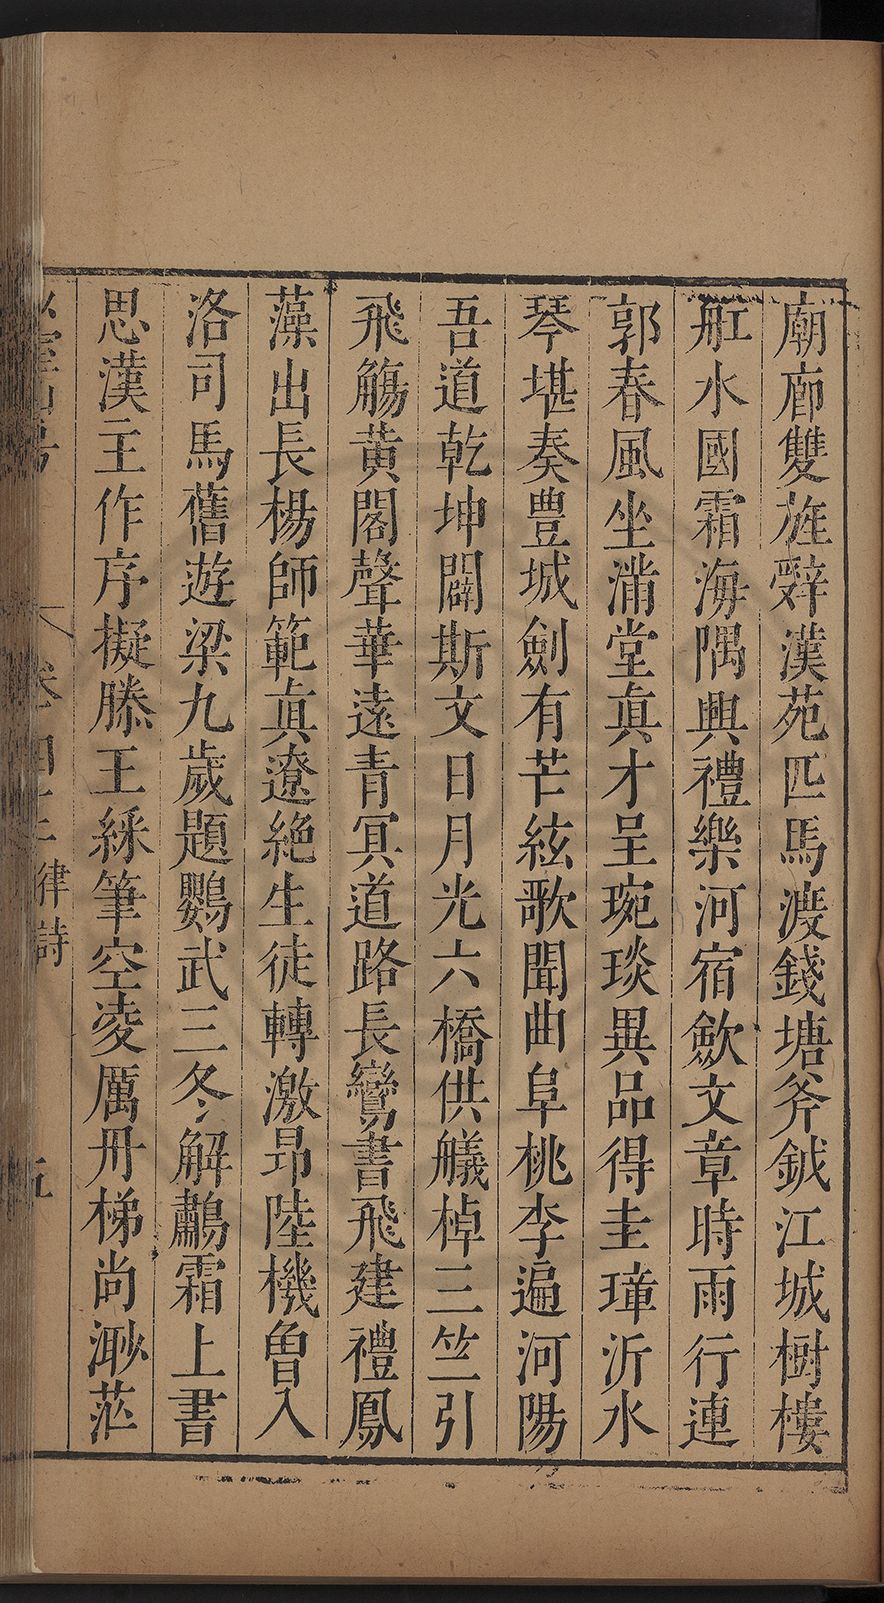 廟廊雙旌辭漢苑匹馬渡錢塘斧鉞江城樹樓
舡水國霜海隅興禮樂河宿歛文章時雨行連
郭春風坐滿堂真才呈琬琰異品得圭璋沂水
琴堪奏豊城劍有芒絃歌聞曲阜桃李遍河陽
吾道乾坤闢斯文日月光六橋供艤棹三竺引
飛觴黃閣聲華遠青冥道路長鸞書飛建禮鳳
藻出長楊師範真遼絶生徒轉激昂陸機曾入
洛司馬舊遊梁九歲題鸚武三冬解鷫霜上書
思漢主作序擬滕王綵筆空凌厲丹梯尚渺茫
卷四 律詩 五